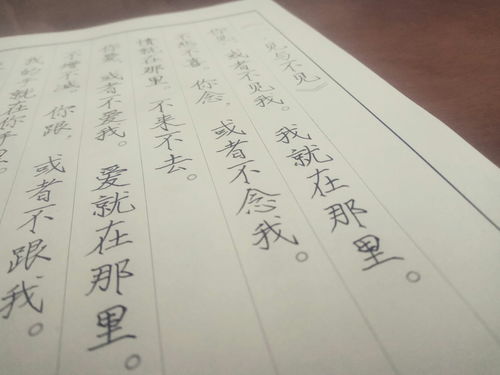 《见与不见》
你见，或者不见我。我就在那里。
不悲不喜。你念，或者不念我。
情就在那里。不来不去。
你爱，或者不爱我。爱就在那里。
不增不减。你跟，或者不跟我。
我的手就在你手里。